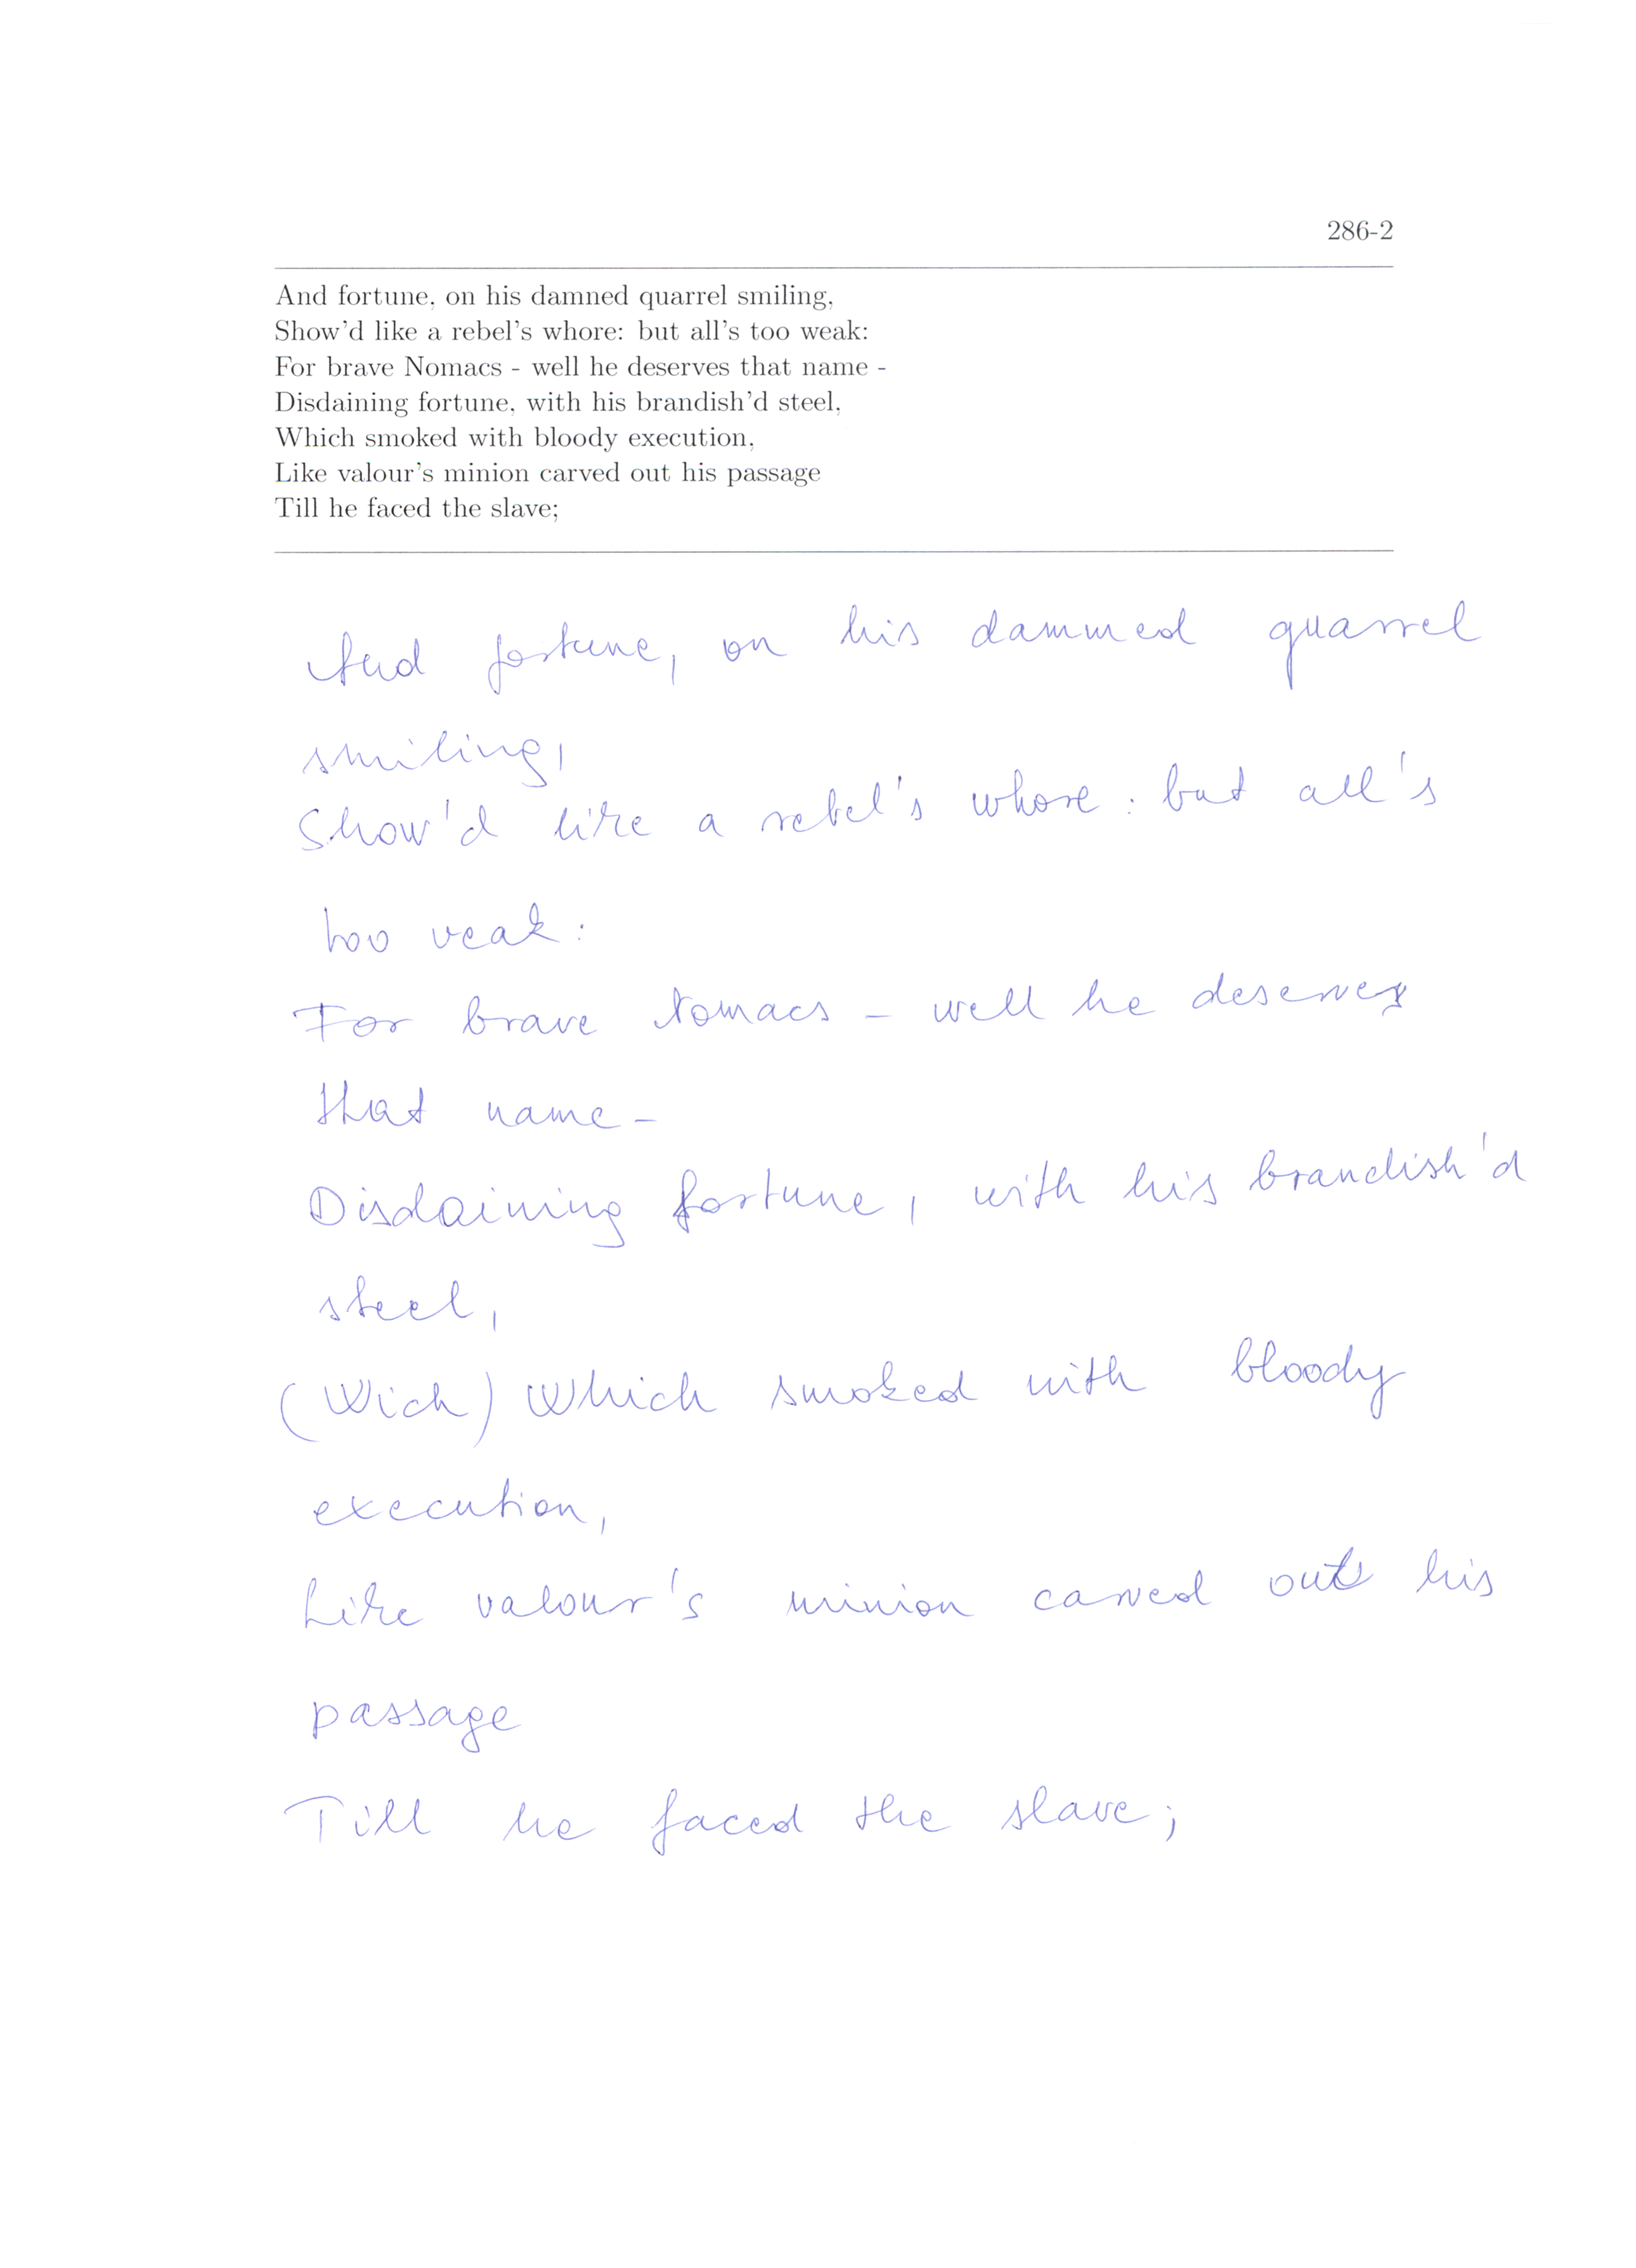 286-2
And fortune, on his damned quarrel smiling,
Show'd like a rebel's whore: but all's too weak:
For brave Nomacs - well he deserves that name -
Disdaining fortune, with his brandish'd steel,
Which smoked with bloody execution,
Like valour's minion carved out his passage
Till he faced the slave;
And fortune, on his dammed quarrel
smiling,
Show'd like a rebel's whore: but all's
too veak:
For brave Nomacs - well he deserves
that name -
Disdaining fortune, with his brandish'd
steel,
(Wich) Which smoked with bloody
execution,
Like valour's minion carved out his
passage
Till he faced the slave;